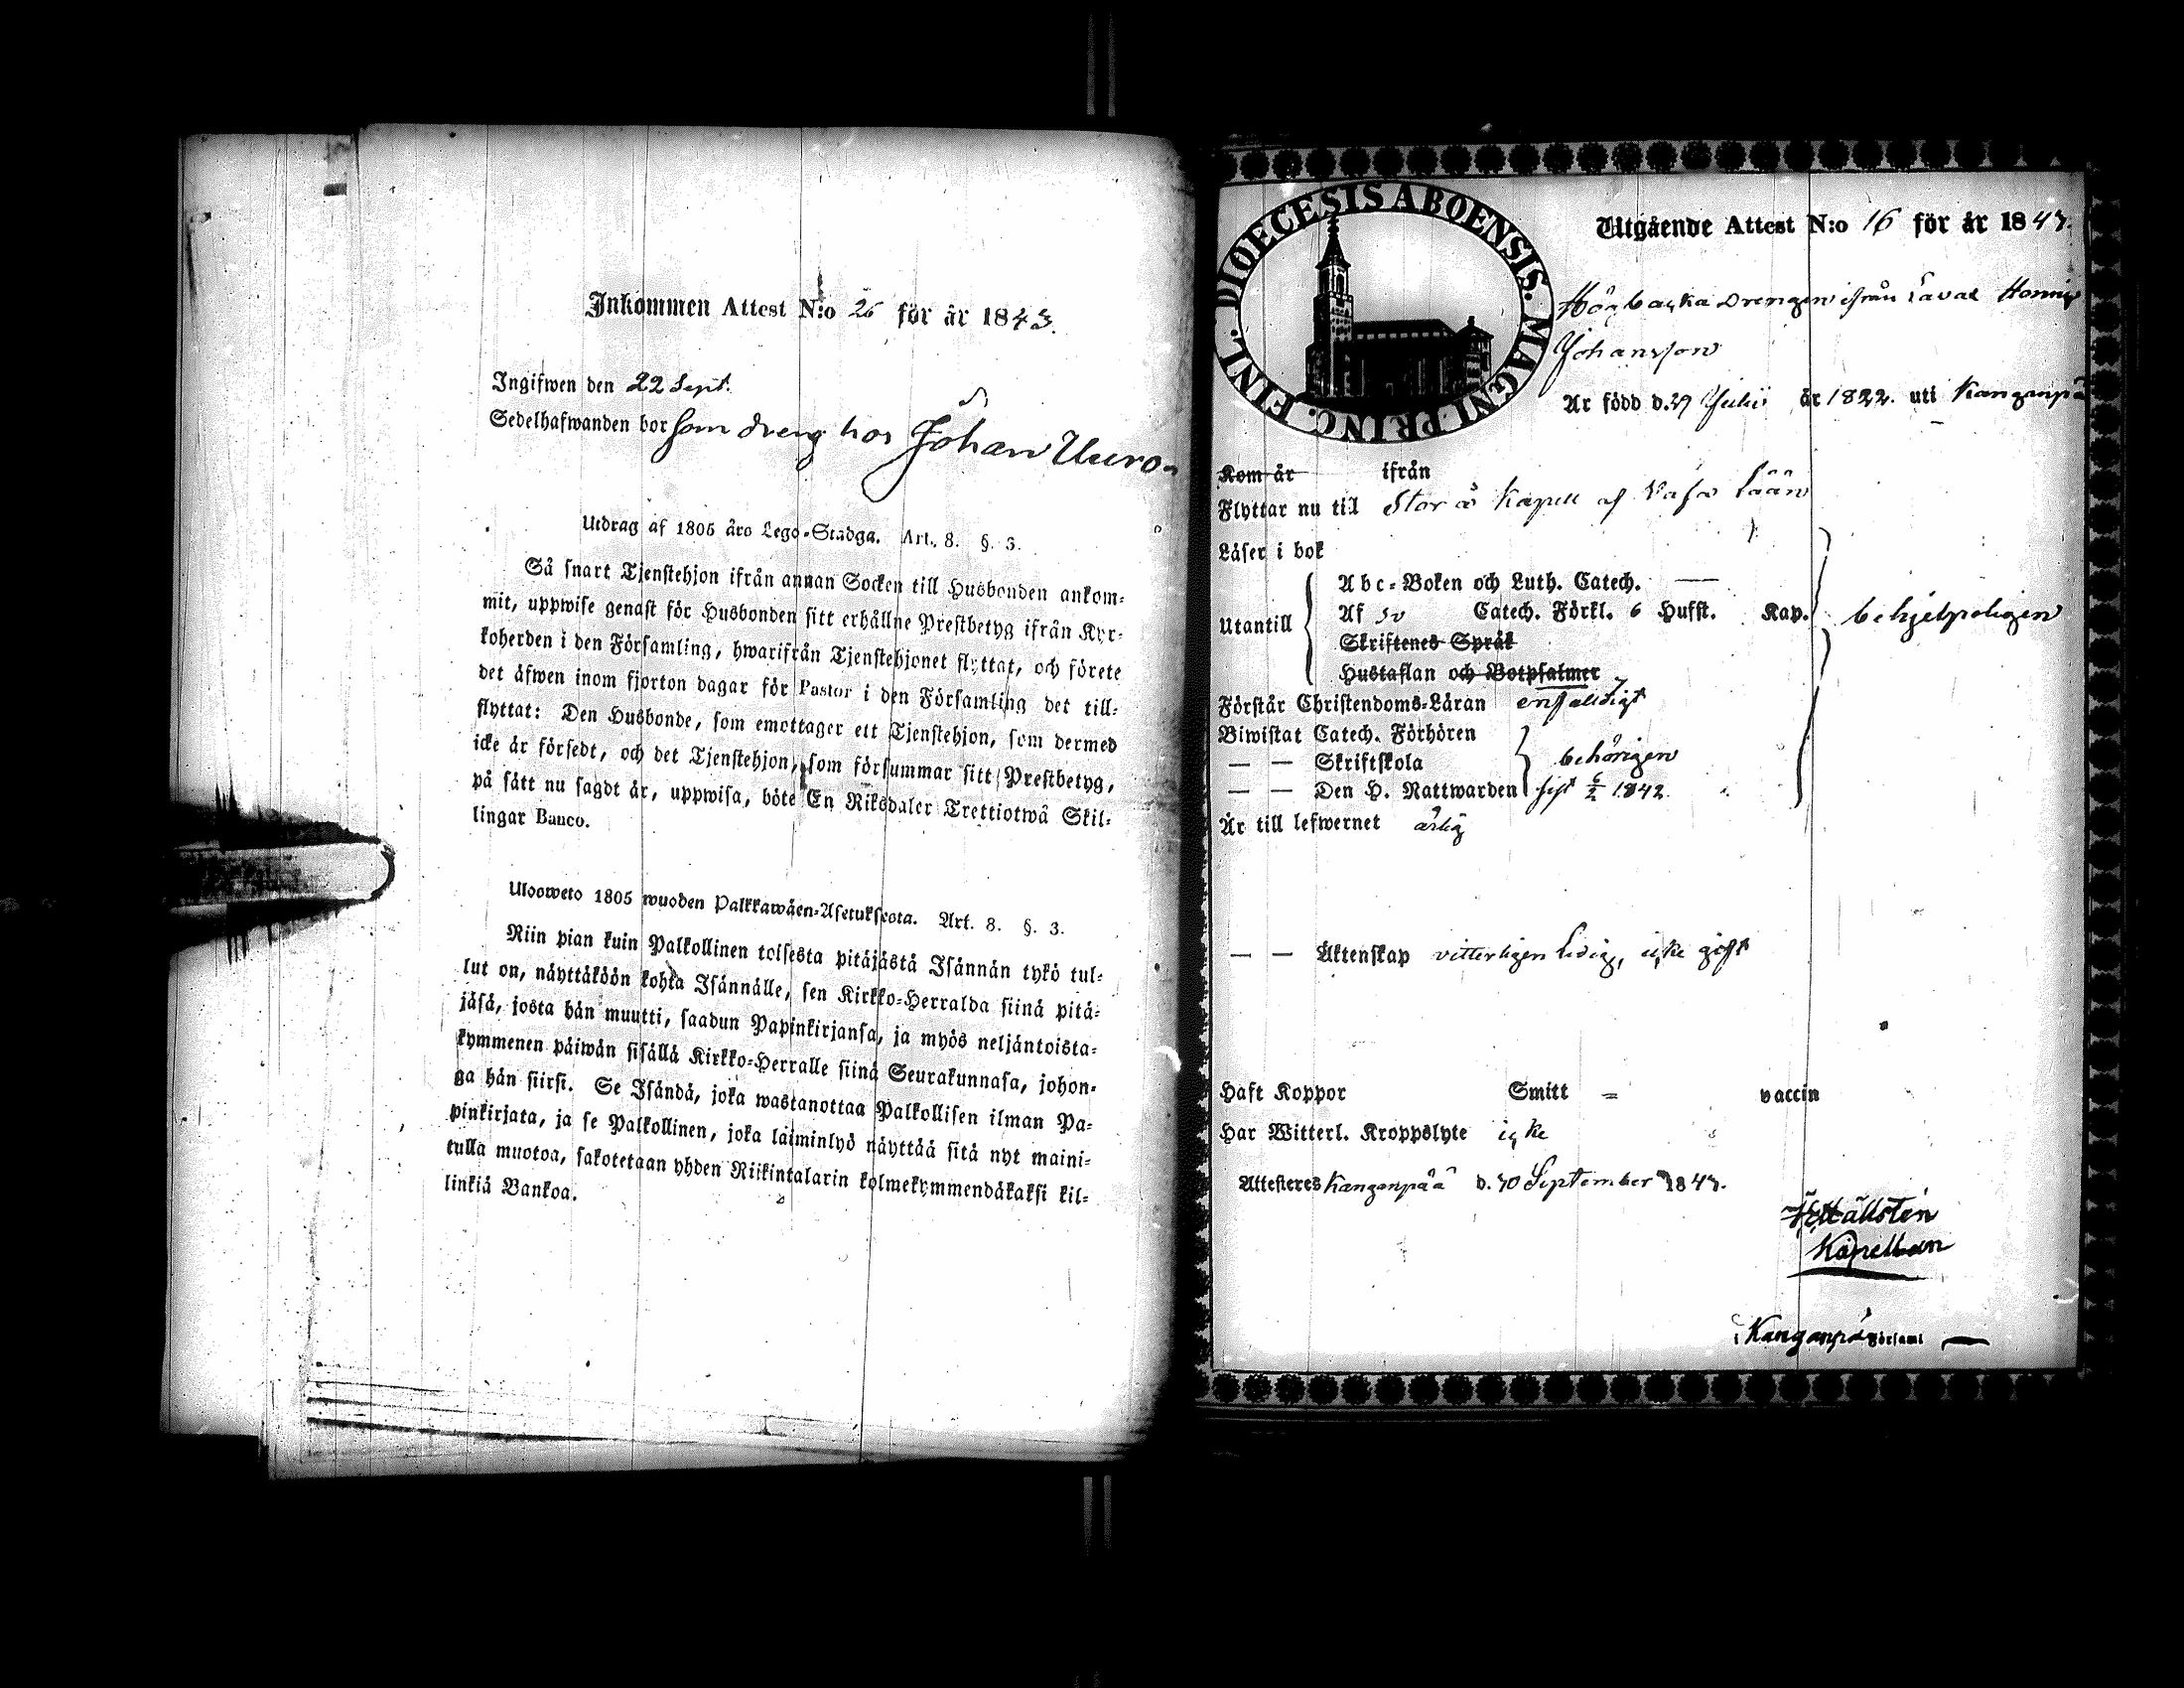 Inkommen Attest N:o 26 för år 1843.
Ingifwen den 22 Sept.
Sedelhafwanden bor som dreng hos Johan Uuro
Utdrag af 1805 års Lego-Stadga. Art. 8. §. 3.
Så snart Tjenstehjon ifrån annan Socken till Husbonden ankom-
mit, uppwise genast för Husbonden sitt erhållne Prestbetyg ifrån Kyr-
koherden i den Församling, hwarifrån Tjenstehjonet flyttat, och förete
det äfwen inom fjorton dagar för Pastor i den Församling det till-
flyttat: Den Husbonde, som emottager ett Tjenstehjon, som dermed
icke är försedt, och det Tjenstehjon, som försummar sitt Prestbetyg,
på sätt nu sagdt är, uppwisa, böte En Riksdaler Trettiotwå Skil-
lingar Banco.
Ulosweto 1805 wuoden Palkkawäen-Asetuksesta. Art. 8. §. 3.
Niin pian kuin Palkollinen toisesta pitäjästä Isännän tykö tul-
lut on, näyttäköön kohta Isännälle, sen Kirkko-Herralda siinä pitä-
jäsä, josta hän muutti, saadun Papinkirjansa, ja myös neljäntoista-
kymmenen päiwän sisällä Kirkko-Herralle siinä Seurakunnasa, johon-
ga hän siirsi. Se Isändä, joka wastanottaa Palkollisen ilman Pa-
pinkirjata, ja se Palkollinen, joka laiminlyö näyttää sitä nyt maini-
tulla muotoa, sakotetaan yhden Riikintalarin kolmekymmendäkaksi kil-
linkiä Bankoa.
DIOECESIS ABOENSIS. MAGNI PRINC. FINL.
Utgående Attest N:o 16 för år 1843.
drengen ifrån
Johansson
Är född d. 29 Julii år 1822. uti Kanganpä
Kom år ifrån
Flyttar nu till Storå Kapell af Vasa Lään
Läser i bok
Utantill
Abc-Boken och Luth. Catech. —
Af Sv Catech. Förkl. 6 Hufst. Kap.
behjelpeligen
Skriftenes Språk
Hustaflan och Botpsalmer
Förstår Christendoms-Läran enfaldigt
Biwistat Catech. Förhören
— — Skriftskola behörigen
— — Den H. Nattwarden sist 6/2 1842.
Är till lefwernet ärlig
— — Äktenskap vitterligen ledig, icke gift
Haft Koppor Smitt = vaccin
Har Witterl. Kroppslyte icke
Attesteres Kanganpää d. 10 September 1843.
Hällsten
Kapellan
i Kanganpä Församl —